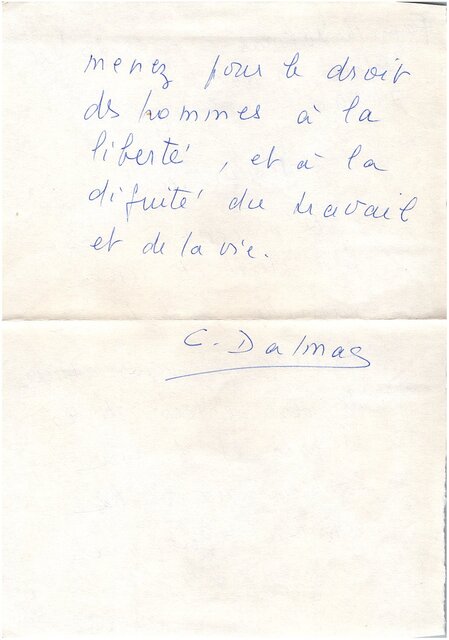 menez pour le droit
des hommes à la
liberté, et à la
dignité du travail
et de la vie.
C. Dalmas